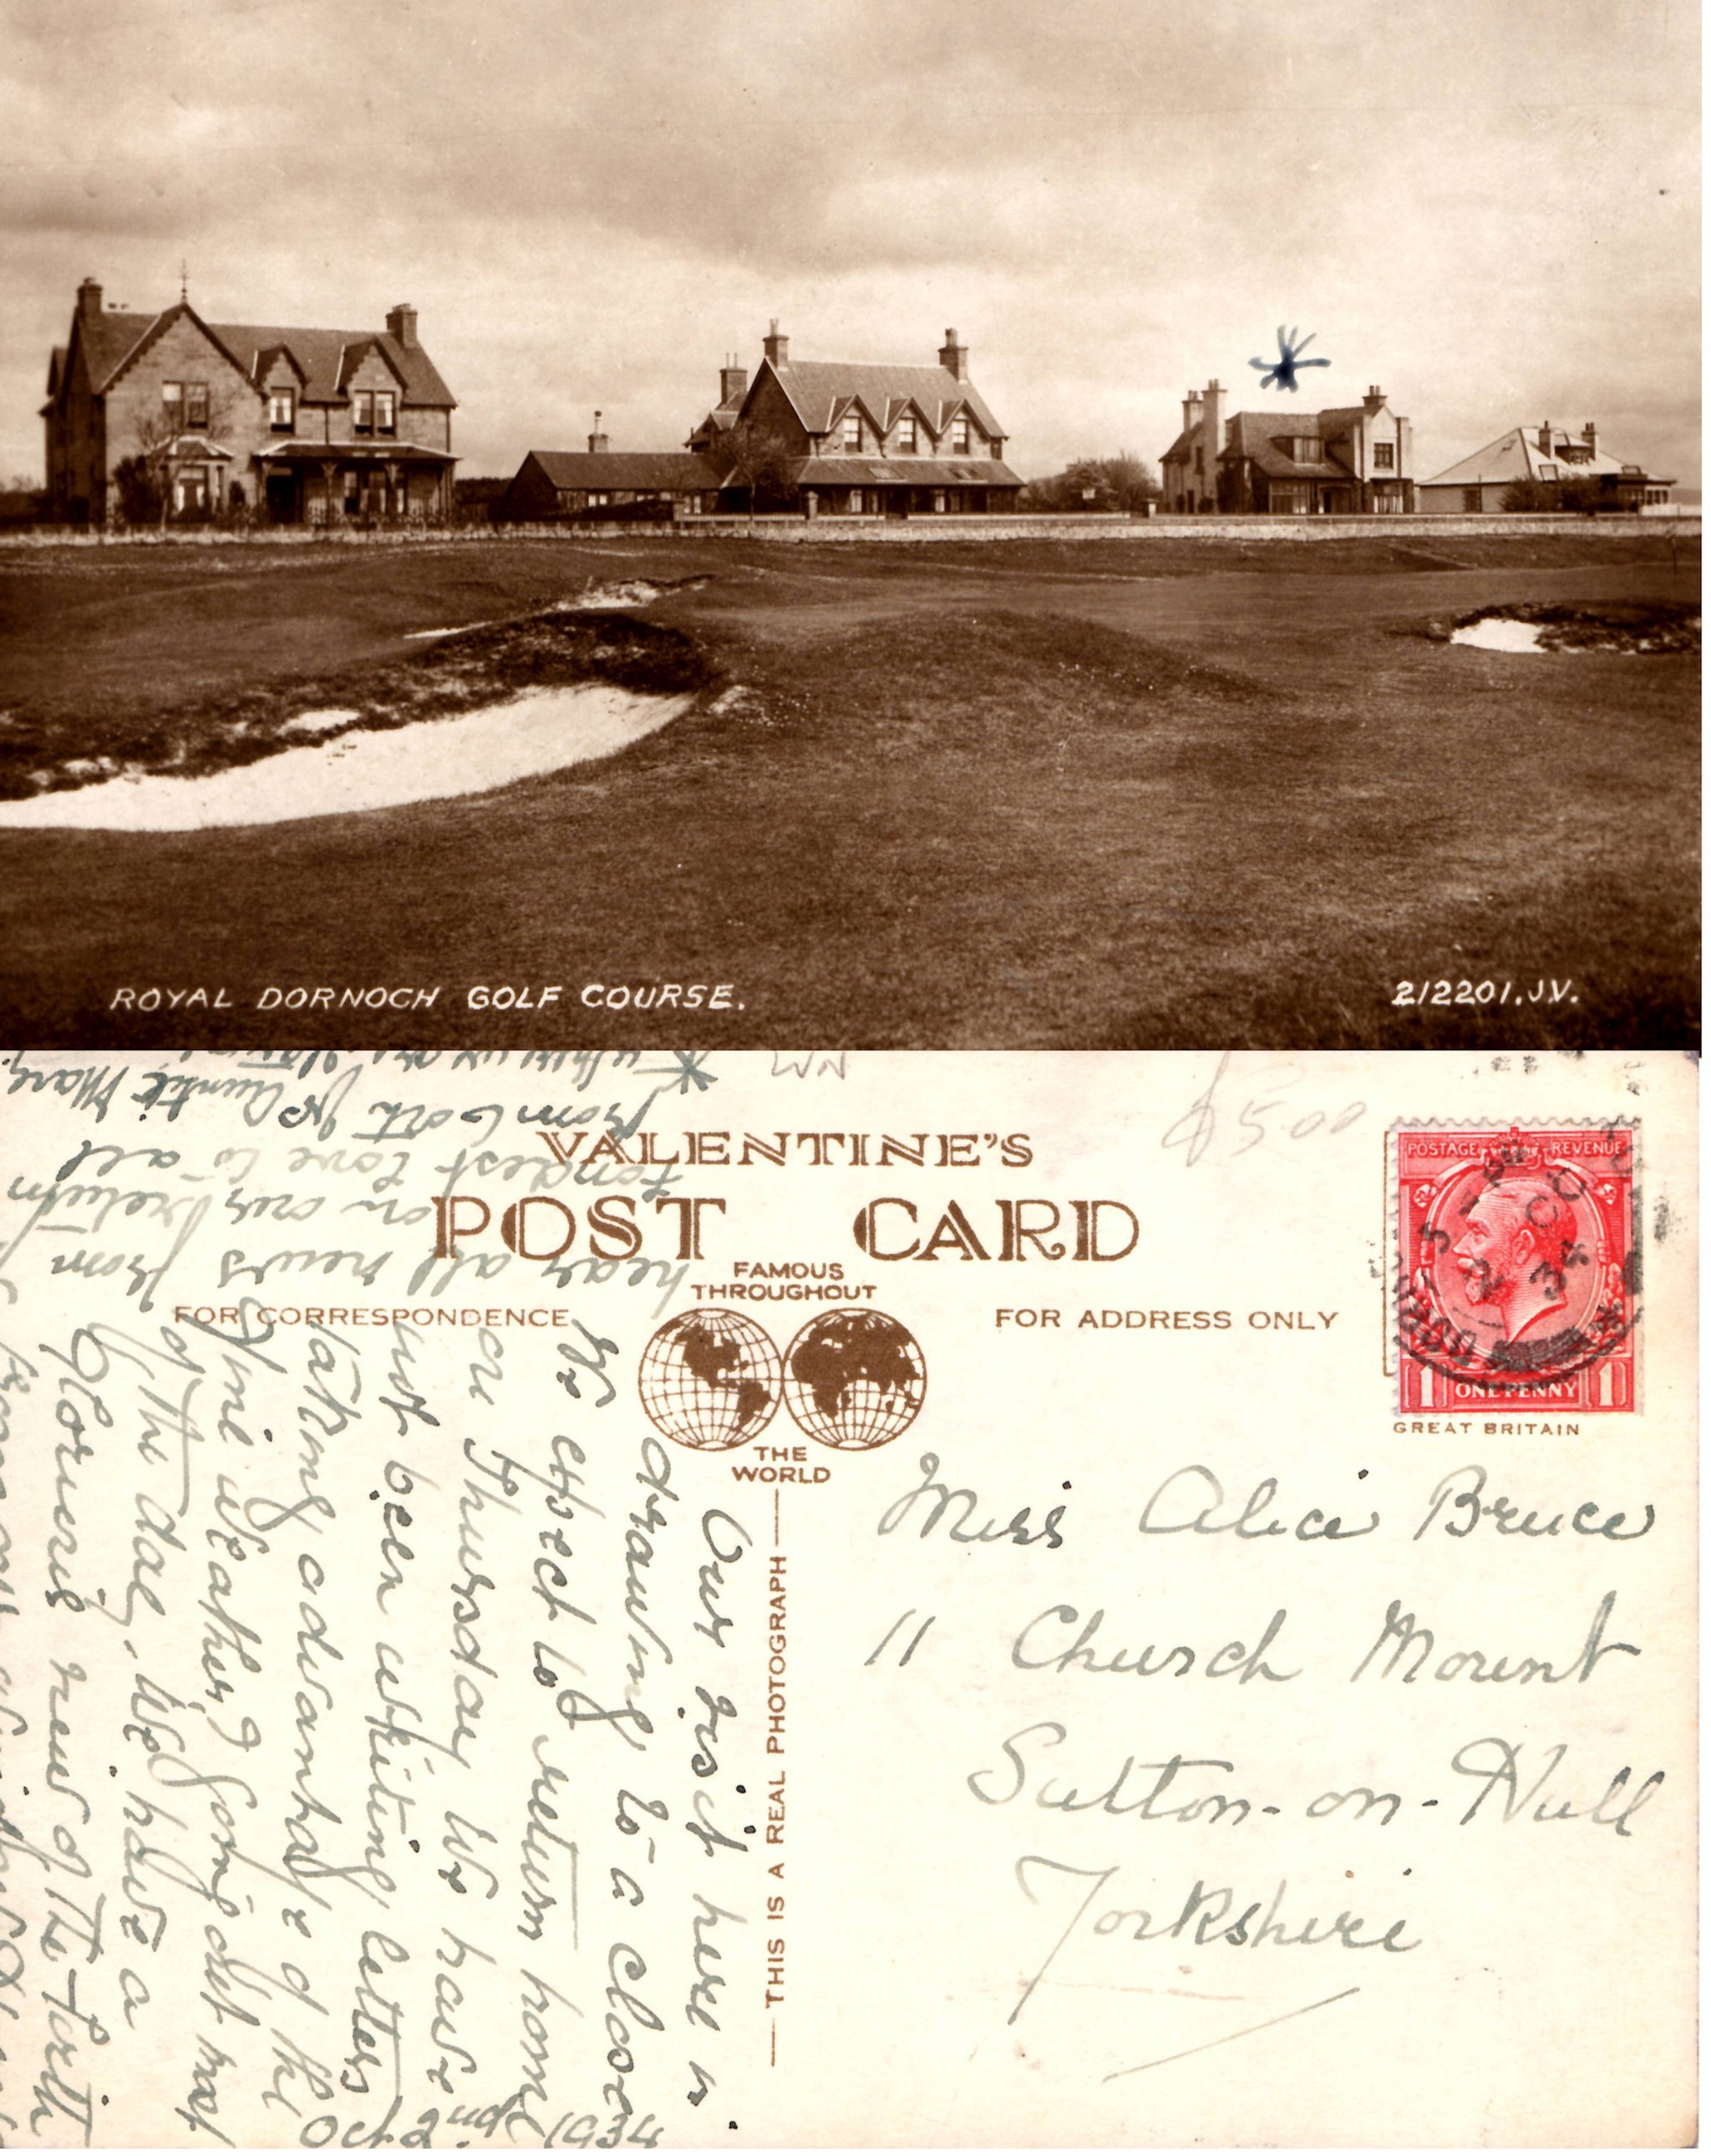 ROYAL DORNOCH GOLF COURSE.
2/2201.J.V.
VALENTINE'S
POST CARD
FAMOUS
THROUGHOUT
THE
WORLD
FOR CORRESPONDENCE
FOR ADDRESS ONLY
THIS IS A REAL PHOTOGRAPH
POSTAGE REVENUE
1 ONE PENNY 1
GREAT BRITAIN
2 OC
34
Miss Alice Bruce
11 Church Mount
Sutton-on-Hull
Yorkshire
Oct 2nd 1934
Our visit here is
drawing to a close
We expect to return home
on Thursday We have
not been writing letters
taking advantage of the
fine weather, & going out most
of the day. We have a
Glorious view of the Firth
from
hear all news
on our return
Fondest Love to all
from both Auntie Marg.
* where we are staying